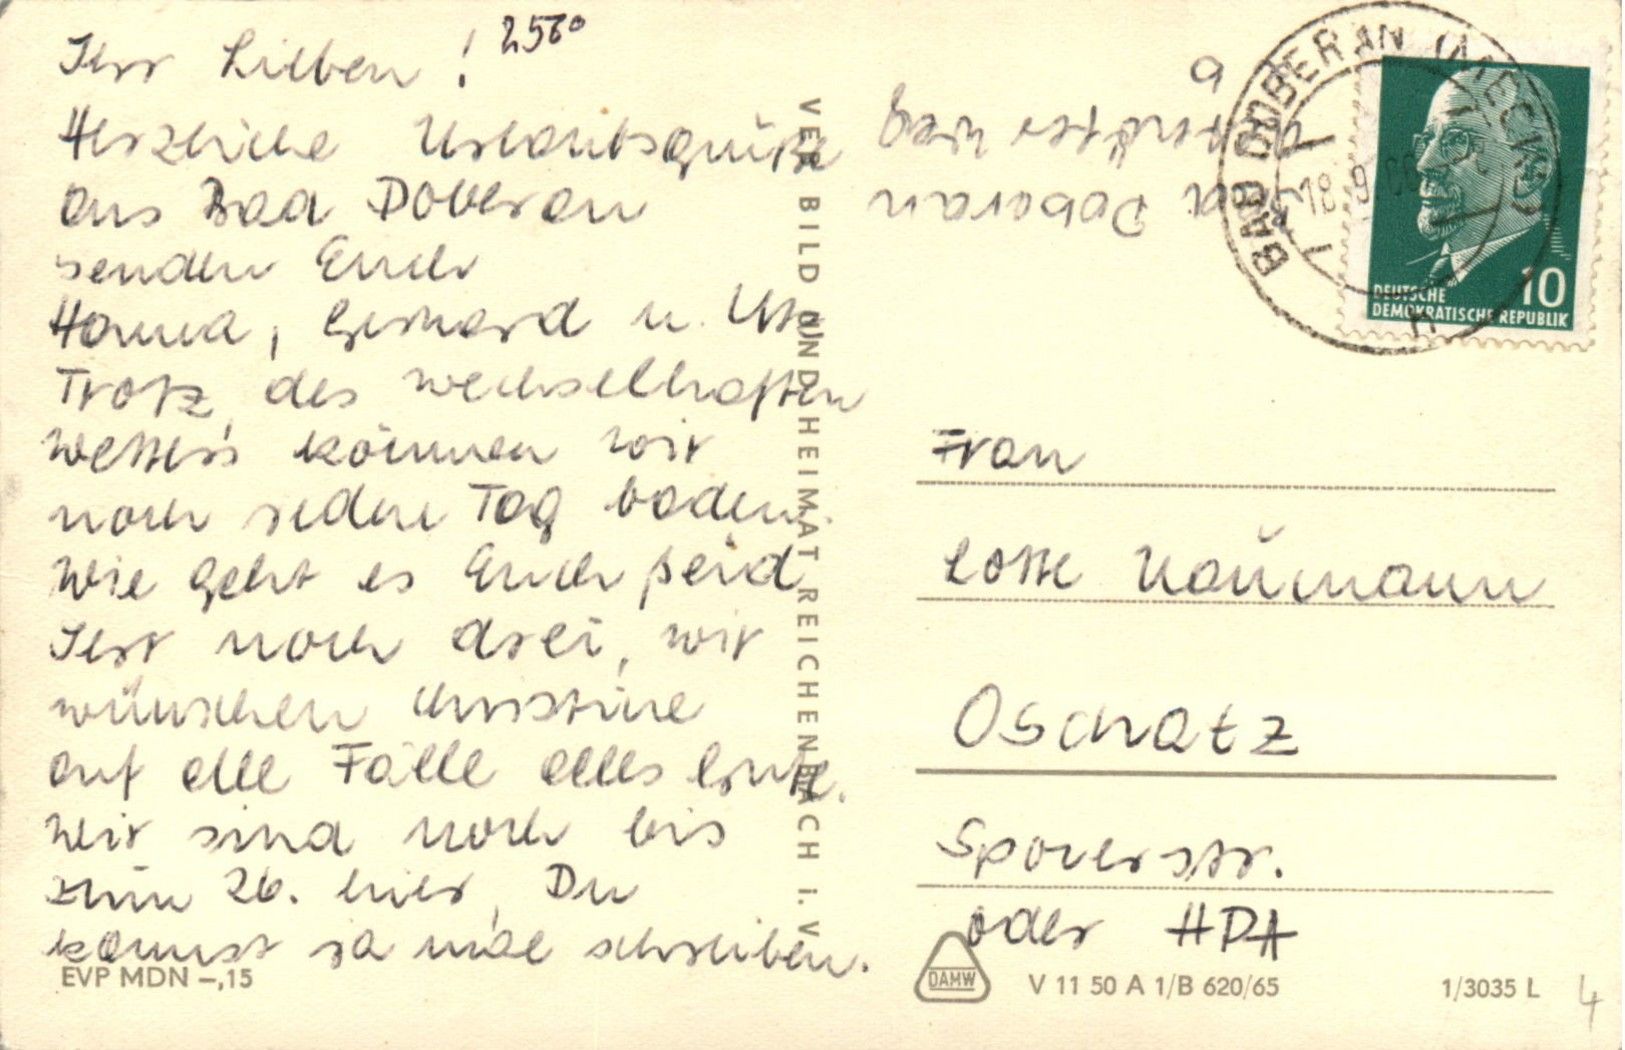 Ihr Lieben !
2560
Herzliche Urlaubsgrüße
aus Bad Doberan
senden Euch
Hanna, Gerhard u. Uta
Trotz des wechselhaften
Wetter's können wir
noch jeden Tag baden.
Wie geht es Euch seid
Ihr noch drei, wir
wünschen Christine
auf alle Fälle alles Gute.
Wir sind noch bis
zum 26. hier, Du
kannst ja mal schreiben.
EVP MDN –,15
VEB BILD UND HEIMAT REICHENBACH I. V.
Doberan
Weg
9
BAD DOBERAN (MECKL)
18.9.
DEUTSCHE
DEMOKRATISCHE REPUBLIK
10
Frau
Lotte Naumann
Oschatz
oder HDA
DAMW
V 11 50 A 1/B 620/65
1/3035 L
4